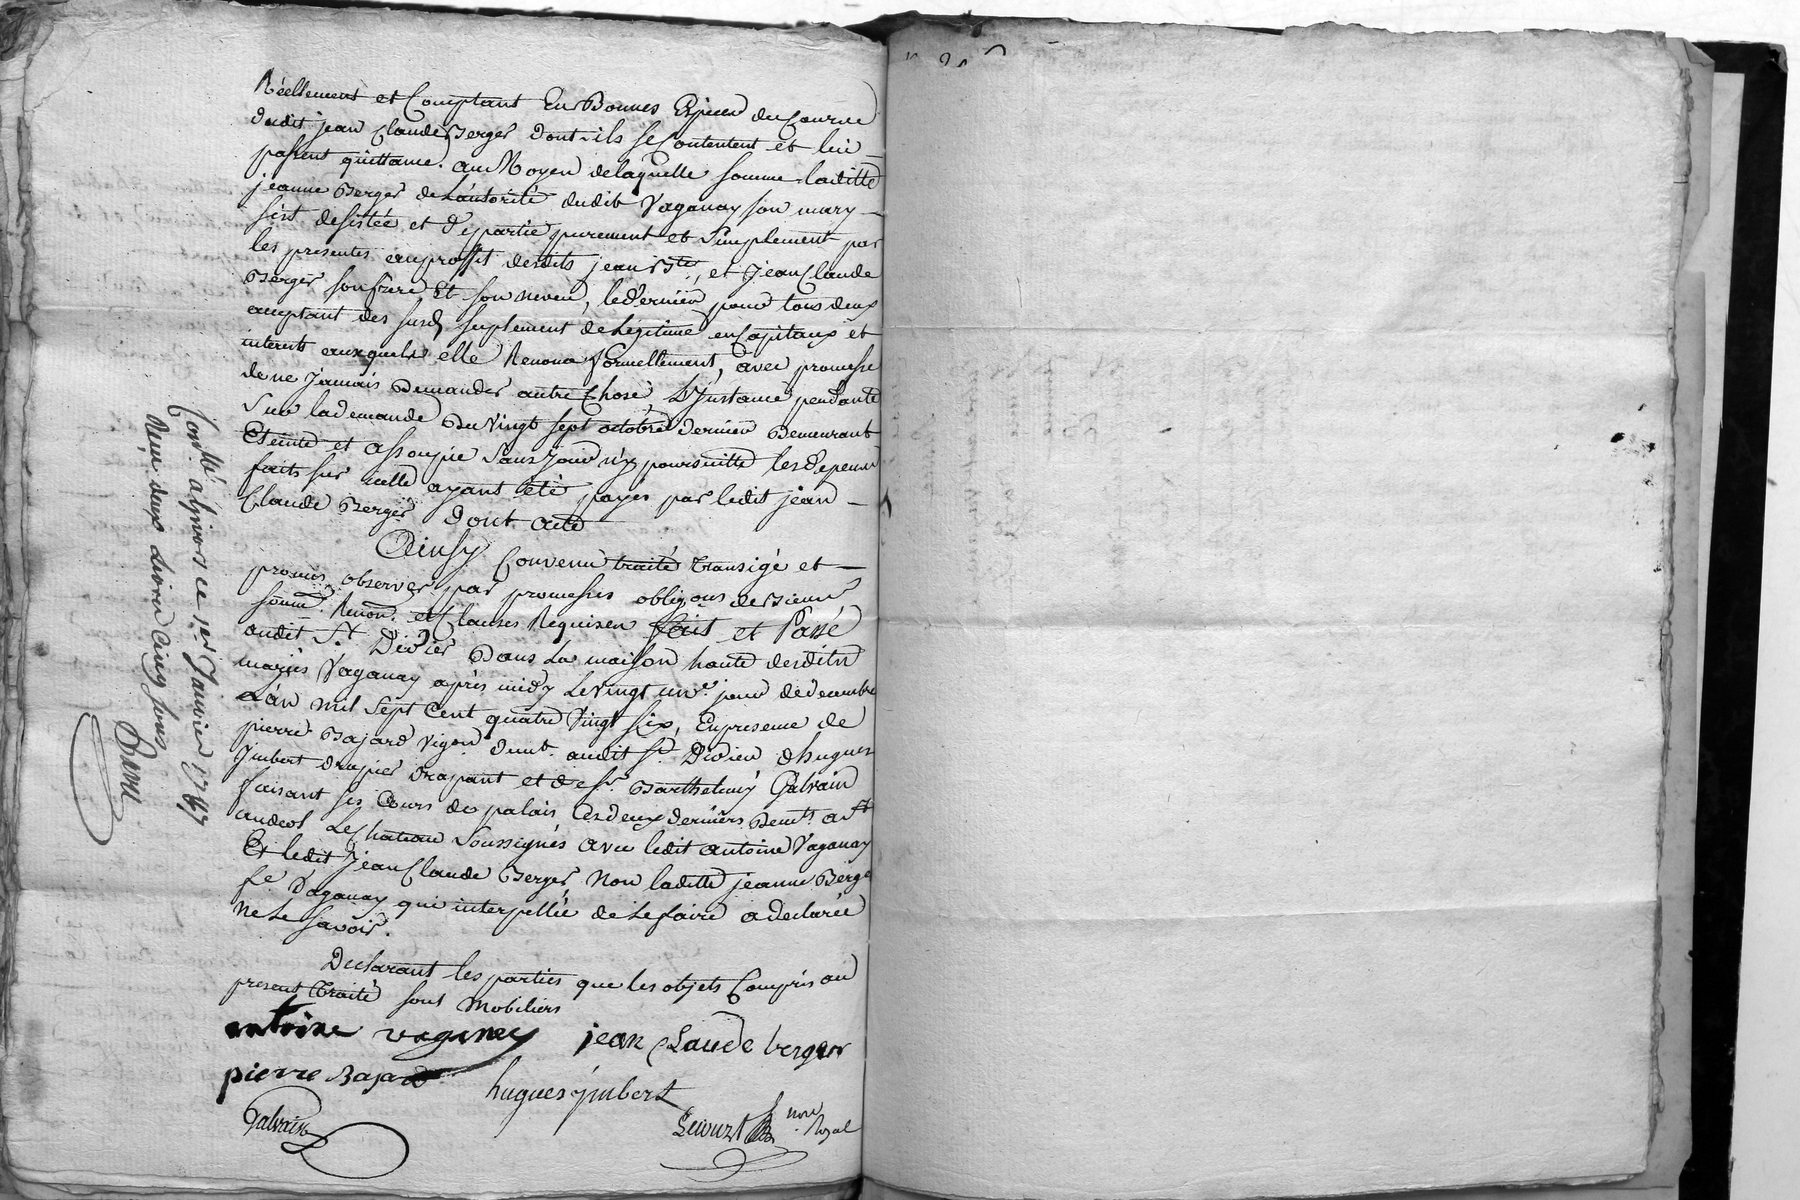 Réellement et Comptant En Bonnes Espèces du Cours
dudit jean Claude Berger dont ils se Contentent et lui
passent quittance. au Moyen de laquelle somme laditte
jeanne Berger de L'autorité dudit Vaganay son mary
s'est desistée et départie purement et Simplement par
les presentes au proffit desdits jean Bte, et Jean Claude
Berger son frere Et son neveu, le dernier pour tous deux
acceptant des susd suplement de Légitime en Capitaux et
interets auxquels elle Renonce formellement, avec promesse
de ne jamais Demander autre Chose, L'Instance pendante
Sur la demande Du Vingt sept octobre dernier Demeurant
Eteinte et assoupie Sans pouvoir etre poursuitte les depens
faits sur icelle ayant été payés par ledit jean
Claude Berger Dont acte
Ainsy Convenu traité transigé et
promis observer par promesses obligons de Biens
soum. Renon. et Clauses Requises fait et Passé
audit St Didier Dans La maison haute desdits
mariés Vaganay après midy Le vingt une jour de decembre
L'an mil Sept Cent quatre Vingt Six, En presence de
pierre Bajard Vigon demt audit St Didier d'hugues
Imbert drapier drapant et de Sr Barthelemy Galvain
faisant ses Cours de palais Ces deux derniers demts a St
andeol Le Chateau Soussignés avec ledit antoine Vaganay
Et ledit Jean Claude Berger Non laditte jeanne Berger
fe Vaganay qui interpellée de Le faire a declarée
ne Le savoir.
Declarant les parties que les objets Compris au
present traité sont Mobiliers
antoine vaganey jean Claude berger
pierre Bajard hugues ymbert
Galvain
nore Royal
Conllé a Givors ce 1er Janvier 1787
Reçu deux Livres Cinq sous